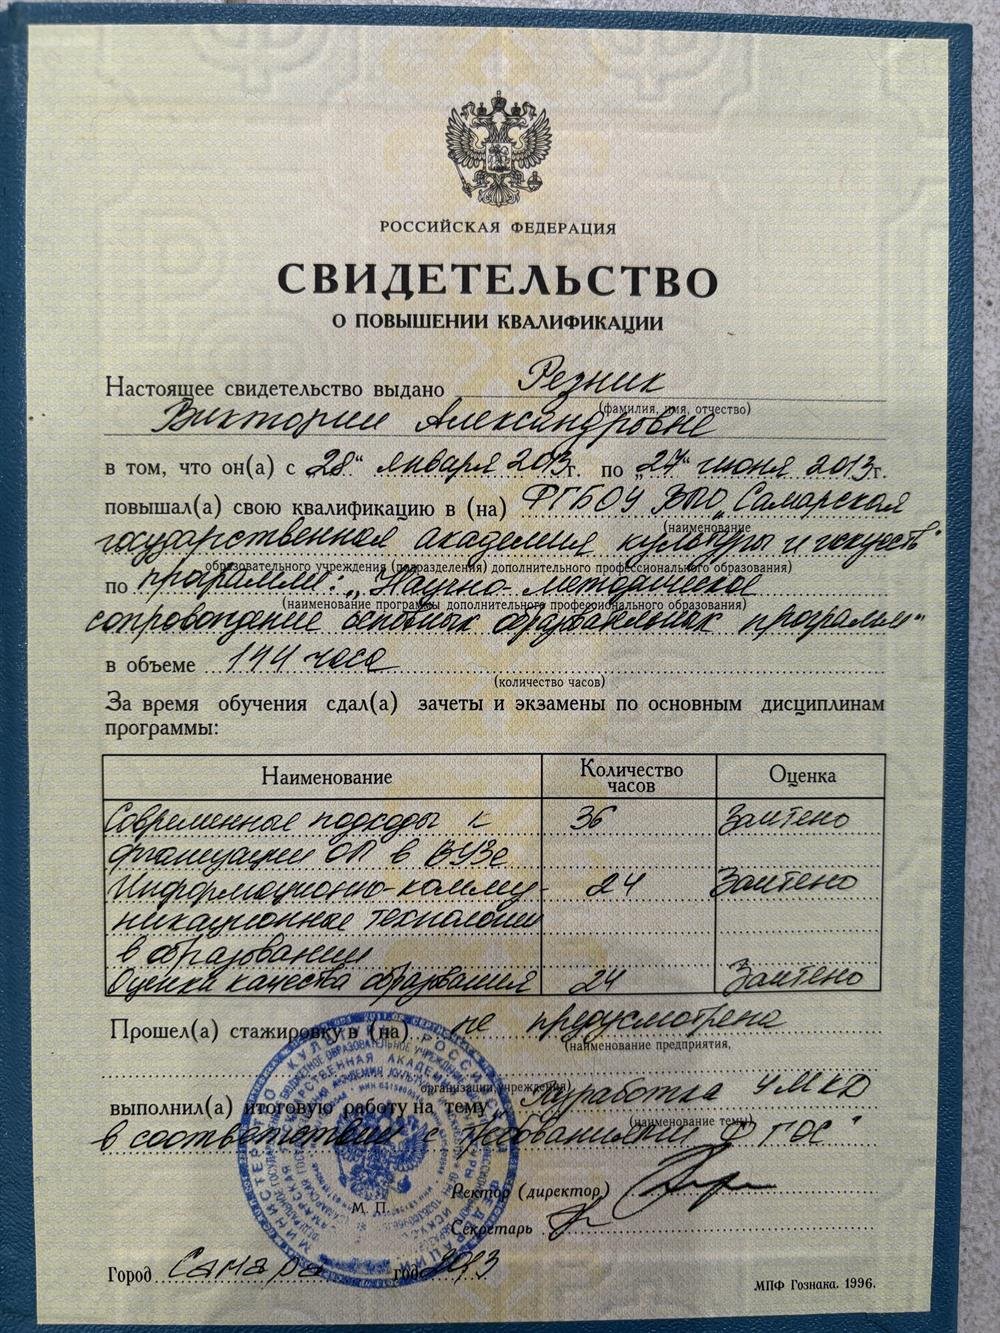 РОССИЙСКАЯ ФЕДЕРАЦИЯ
СВИДЕТЕЛЬСТВО
О ПОВЫШЕНИИ КВАЛИФИКАЦИИ
Настоящее свидетельство выдано Резник
(фамилия, имя, отчество)
Виктории Александровне
в том, что он(а) с „28“ января 2013г. по „27“ июня 2013г.
повышал(а) свою квалификацию в (на) ФГБОУ ВПО „Самарская
(наименование
государственная академия культуры и искусств“
образовательного учреждения (подразделения) дополнительного профессионального образования)
по программе: „Научно-методическое
(наименование программы дополнительного профессионального образования)
сопровождение основных образовательных программ“
в объеме 144 часа
(количество часов)
За время обучения сдал(а) зачеты и экзамены по основным дисциплинам
программы:
Наименование Количество часов Оценка
Современные подходы к 36 Зачтено
организации ОП в ВУЗе
Информационно-комму- 24 Зачтено
никационные технологии
в образовании
Оценка качества образования 24 Зачтено
Прошел(а) стажировку в (на) не предусмотрена
(наименование предприятия,
организации, учреждения)
выполнил(а) итоговую работу на тему „Разработка УМКД
(наименование темы)
в соответствии с требованиями ФГОС“
Ректор (директор)
М. П.
Секретарь
Город Самара год 2013
МПФ Гознака. 1996.